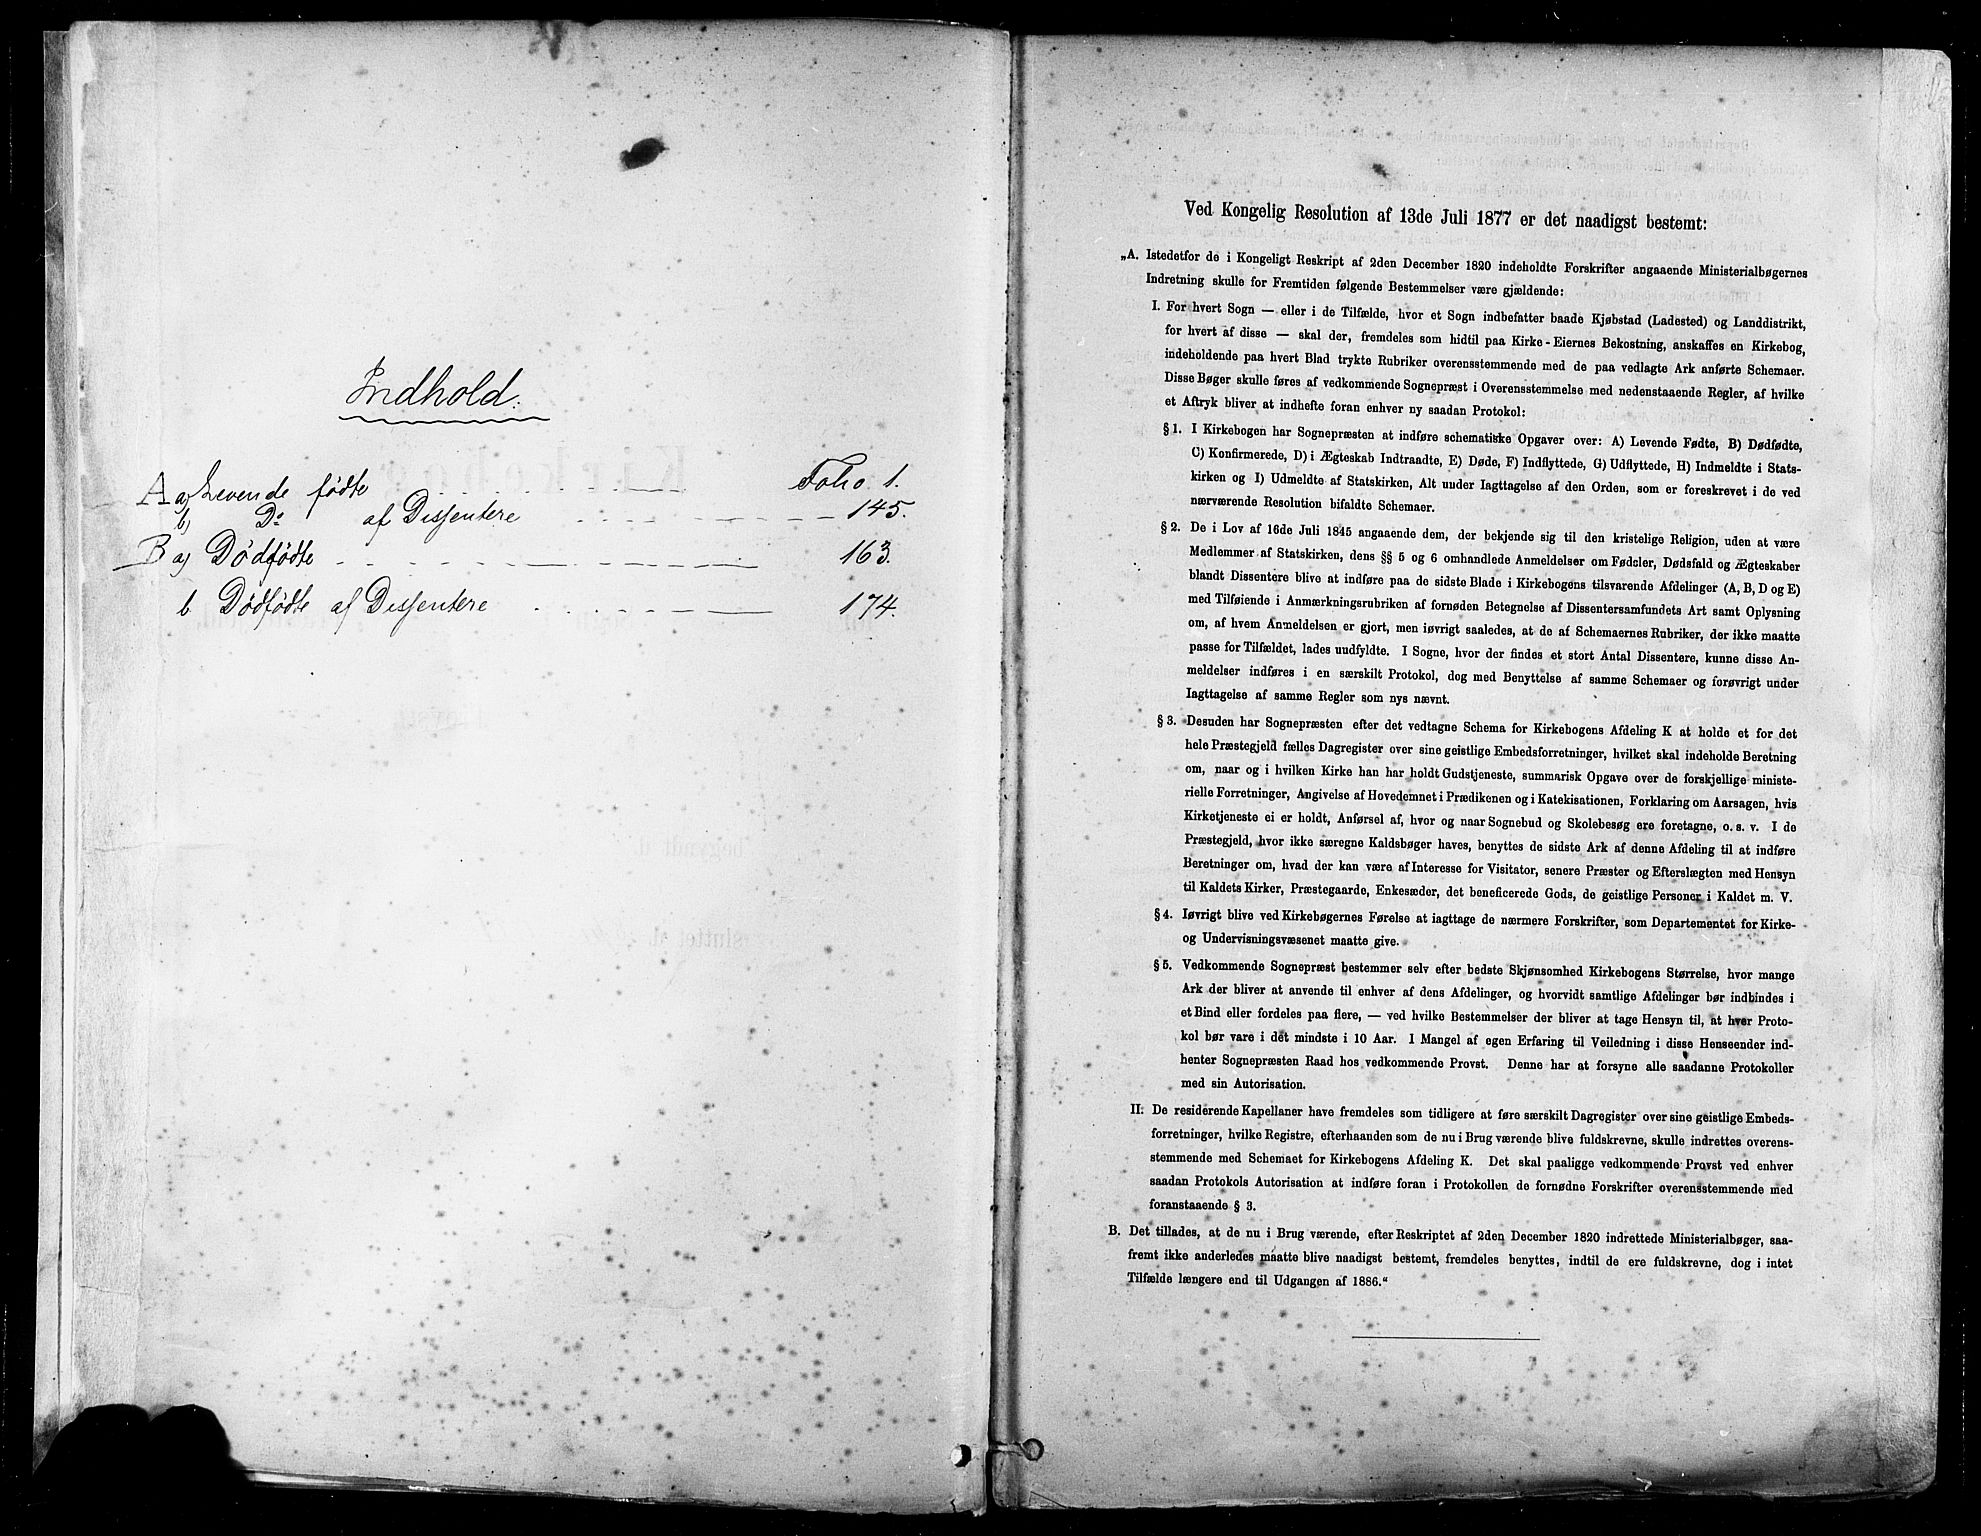 Indhold:
A a) Levende fødte Folio 1.
b) Do af Dissentere 145.
B a) Dødfødte 163.
b Dødfødte af Dissentere 174.
Ved Kongelig Resolution af 13de Juli 1877 er det naadigst bestemt:
„A. Istedetfor de i Kongeligt Reskript af 2den December 1820 indeholdte Forskrifter angaaende Ministerialbøgernes
Indretning skulle for Fremtiden følgende Bestemmelser være gjældende:
I. For hvert Sogn — eller i de Tilfælde, hvor et Sogn indbefatter baade Kjøbstad (Ladested) og Landdistrikt,
for hvert af disse — skal der, fremdeles som hidtil paa Kirke-Eiernes Bekostning, anskaffes en Kirkebog,
indeholdende paa hvert Blad trykte Rubriker overensstemmende med de paa vedlagte Ark anførte Schemaer.
Disse Bøger skulle føres af vedkommende Sognepræst i Overensstemmelse med nedenstaaende Regler, af hvilke
et Aftryk bliver at indhefte foran enhver ny saadan Protokol:
§ 1. I Kirkebogen har Sognepræsten at indføre schematiske Opgaver over: A) Levende Fødte, B) Dødfødte,
C) Konfirmerede, D) i Ægteskab Indtraadte, E) Døde, F) Indflyttede, G) Udflyttede, H) Indmeldte i Stats-
kirken og I) Udmeldte af Statskirken, Alt under Iagttagelse af den Orden, som er foreskrevet i de ved
nærværende Resolution bifaldte Schemaer.
§ 2. De i Lov af 16de Juli 1845 angaaende dem, der bekjende sig til den kristelige Religion, uden at være
Medlemmer af Statskirken, dens §§ 5 og 6 omhandlede Anmeldelser om Fødsler, Dødsfald og Ægteskaber
blandt Dissentere blive at indføre paa de sidste Blade i Kirkebogens tilsvarende Afdelinger (A, B, D og E)
med Tilføiende i Anmærkningsrubriken af fornøden Betegnelse af Dissentersamfundets Art samt Oplysning
om, af hvem Anmeldelsen er gjort, men iøvrigt saaledes, at de af Schemaernes Rubriker, der ikke maatte
passe for Tilfældet, lades uudfyldte. I Sogne, hvor der findes et stort Antal Dissentere, kunne disse An-
meldelser indføres i en særskilt Protokol, dog med Benyttelse af samme Schemaer og forøvrigt under
Iagttagelse af samme Regler som nys nævnt.
§ 3. Desuden har Sognepræsten efter det vedtagne Schema for Kirkebogens Afdeling K at holde et for det
hele Præstegjeld fælles Dagregister over sine geistlige Embedsforretninger, hvilket skal indeholde Beretning
om, naar og i hvilken Kirke han har holdt Gudstjeneste, summarisk Opgave over de forskjellige ministe-
rielle Forretninger, Angivelse af Hovedemnet i Prædikenen og i Katekisationen, Forklaring om Aarsagen, hvis
Kirketjeneste ei er holdt, Anførsel af, hvor og naar Sognebud og Skolebesøg ere foretagne, o. s. v. I de
Præstegjeld, hvor ikke særegne Kaldsbøger haves, benyttes de sidste Ark af denne Afdeling til at indføre
Beretninger om, hvad der kan være af Interesse for Visitator, senere Præster og Efterslægten med Hensyn
til Kaldets Kirker, Præstegaarde, Enkesæder, det beneficerede Gods, de geistlige Personer i Kaldet m. V.
§ 4. Iøvrigt blive ved Kirkebøgernes Førelse at iagttage de nærmere Forskrifter, som Departementet for Kirke-
og Undervisningsvæsenet maatte give.
§ 5. Vedkommende Sognepræst bestemmer selv efter bedste Skjønsomhed Kirkebogens Størrelse, hvor mange
Ark der bliver at anvende til enhver af dens Afdelinger, og hvorvidt samtlige Afdelinger bør indbindes i
et Bind eller fordeles paa flere, — ved hvilke Bestemmelser der bliver at tage Hensyn til, at hver Proto-
kol bør vare i det mindste i 10 Aar. I Mangel af egen Erfaring til Veiledning i disse Henseender ind-
henter Sognepræsten Raad hos vedkommende Provst. Denne har at forsyne alle saadanne Protokoller
med sin Autorisation.
II. De residerende Kapellaner have fremdeles som tidligere at føre særskilt Dagregister over sine geistlige Embeds-
forretninger, hvilke Registre, efterhaanden som de nu i Brug værende blive fuldskrevne, skulle indrettes overens-
stemmende med Schemaet for Kirkebogens Afdeling K. Det skal paaligge vedkommende Provst ved enhver
saadan Protokols Autorisation at indføre foran i Protokollen de fornødne Forskrifter overensstemmende med
foranstaaende § 3.
B. Det tillades, at de nu i Brug værende, efter Reskriptet af 2den December 1820 indrettede Ministerialbøger, saa-
fremt ikke anderledes maatte blive naadigst bestemt, fremdeles benyttes, indtil de ere fuldskrevne, dog i intet
Tilfælde længere end til Udgangen af 1886.“